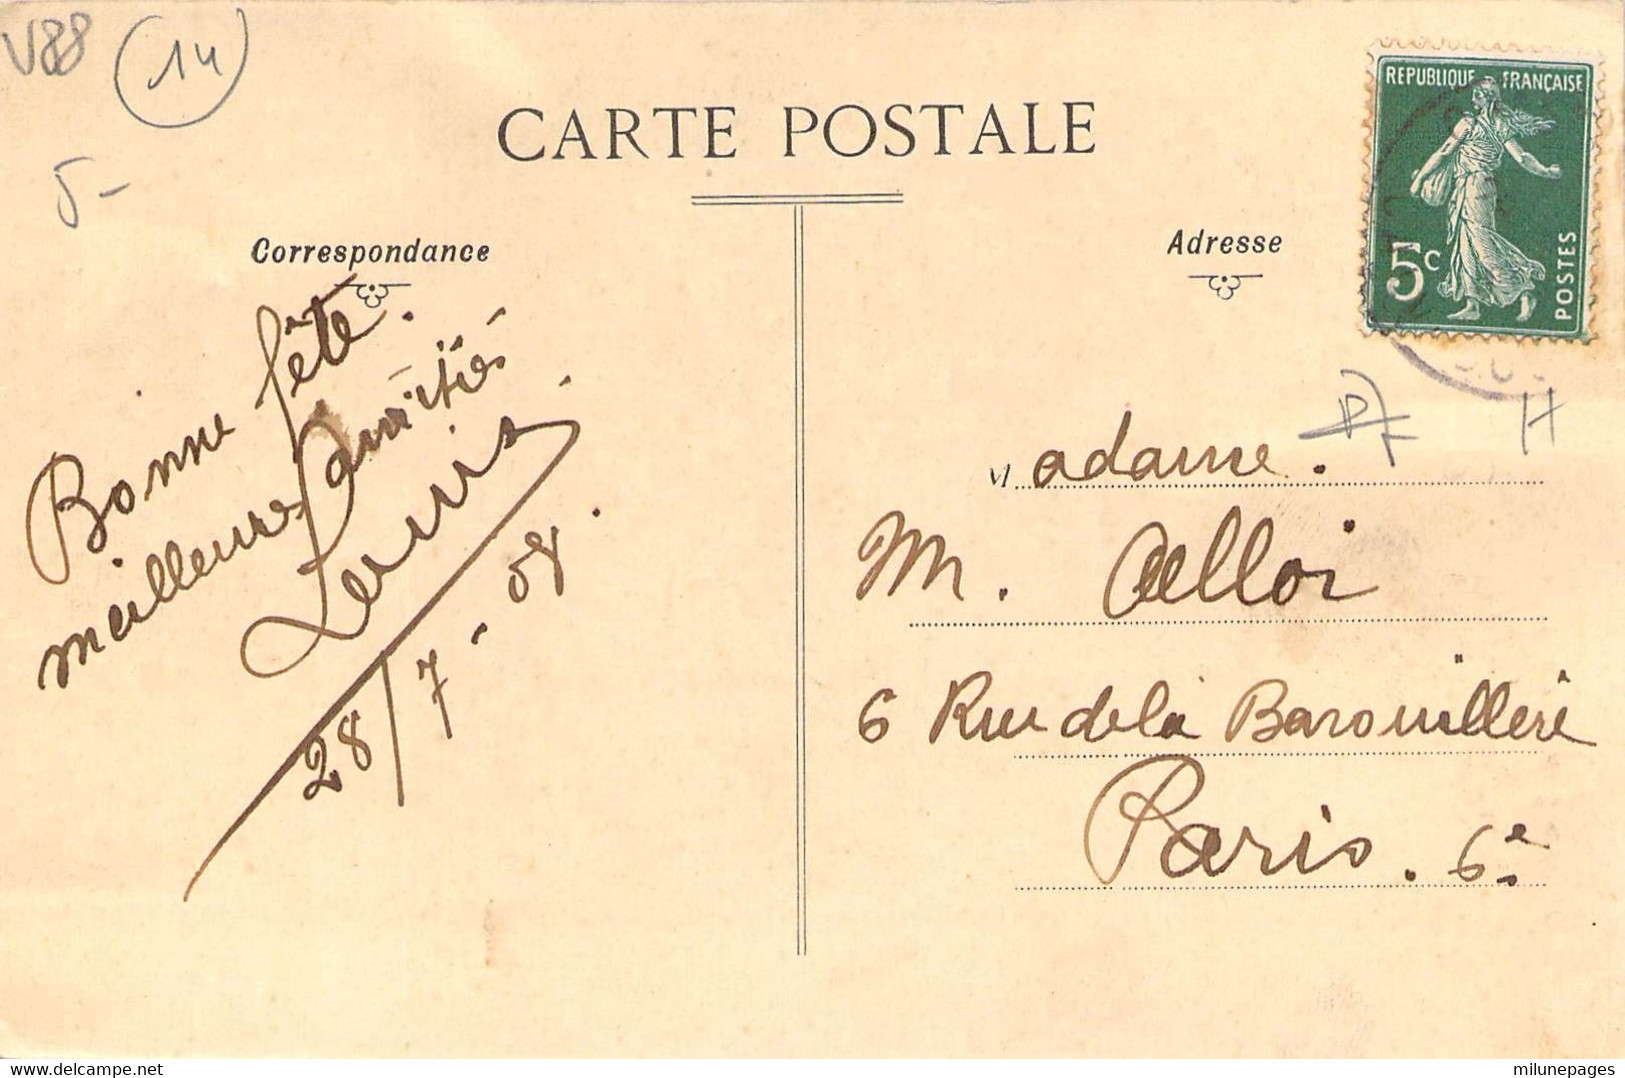 V88
14
5-
CARTE POSTALE
Correspondance
Adresse
REPUBLIQUE FRANÇAISE
5c
POSTES
Bonne fête.
meilleures amitiés
28/7-08.
H
Madame.
M.
6 Rue de la Barouillère
Paris. 6e
delcampe.net
milunepages